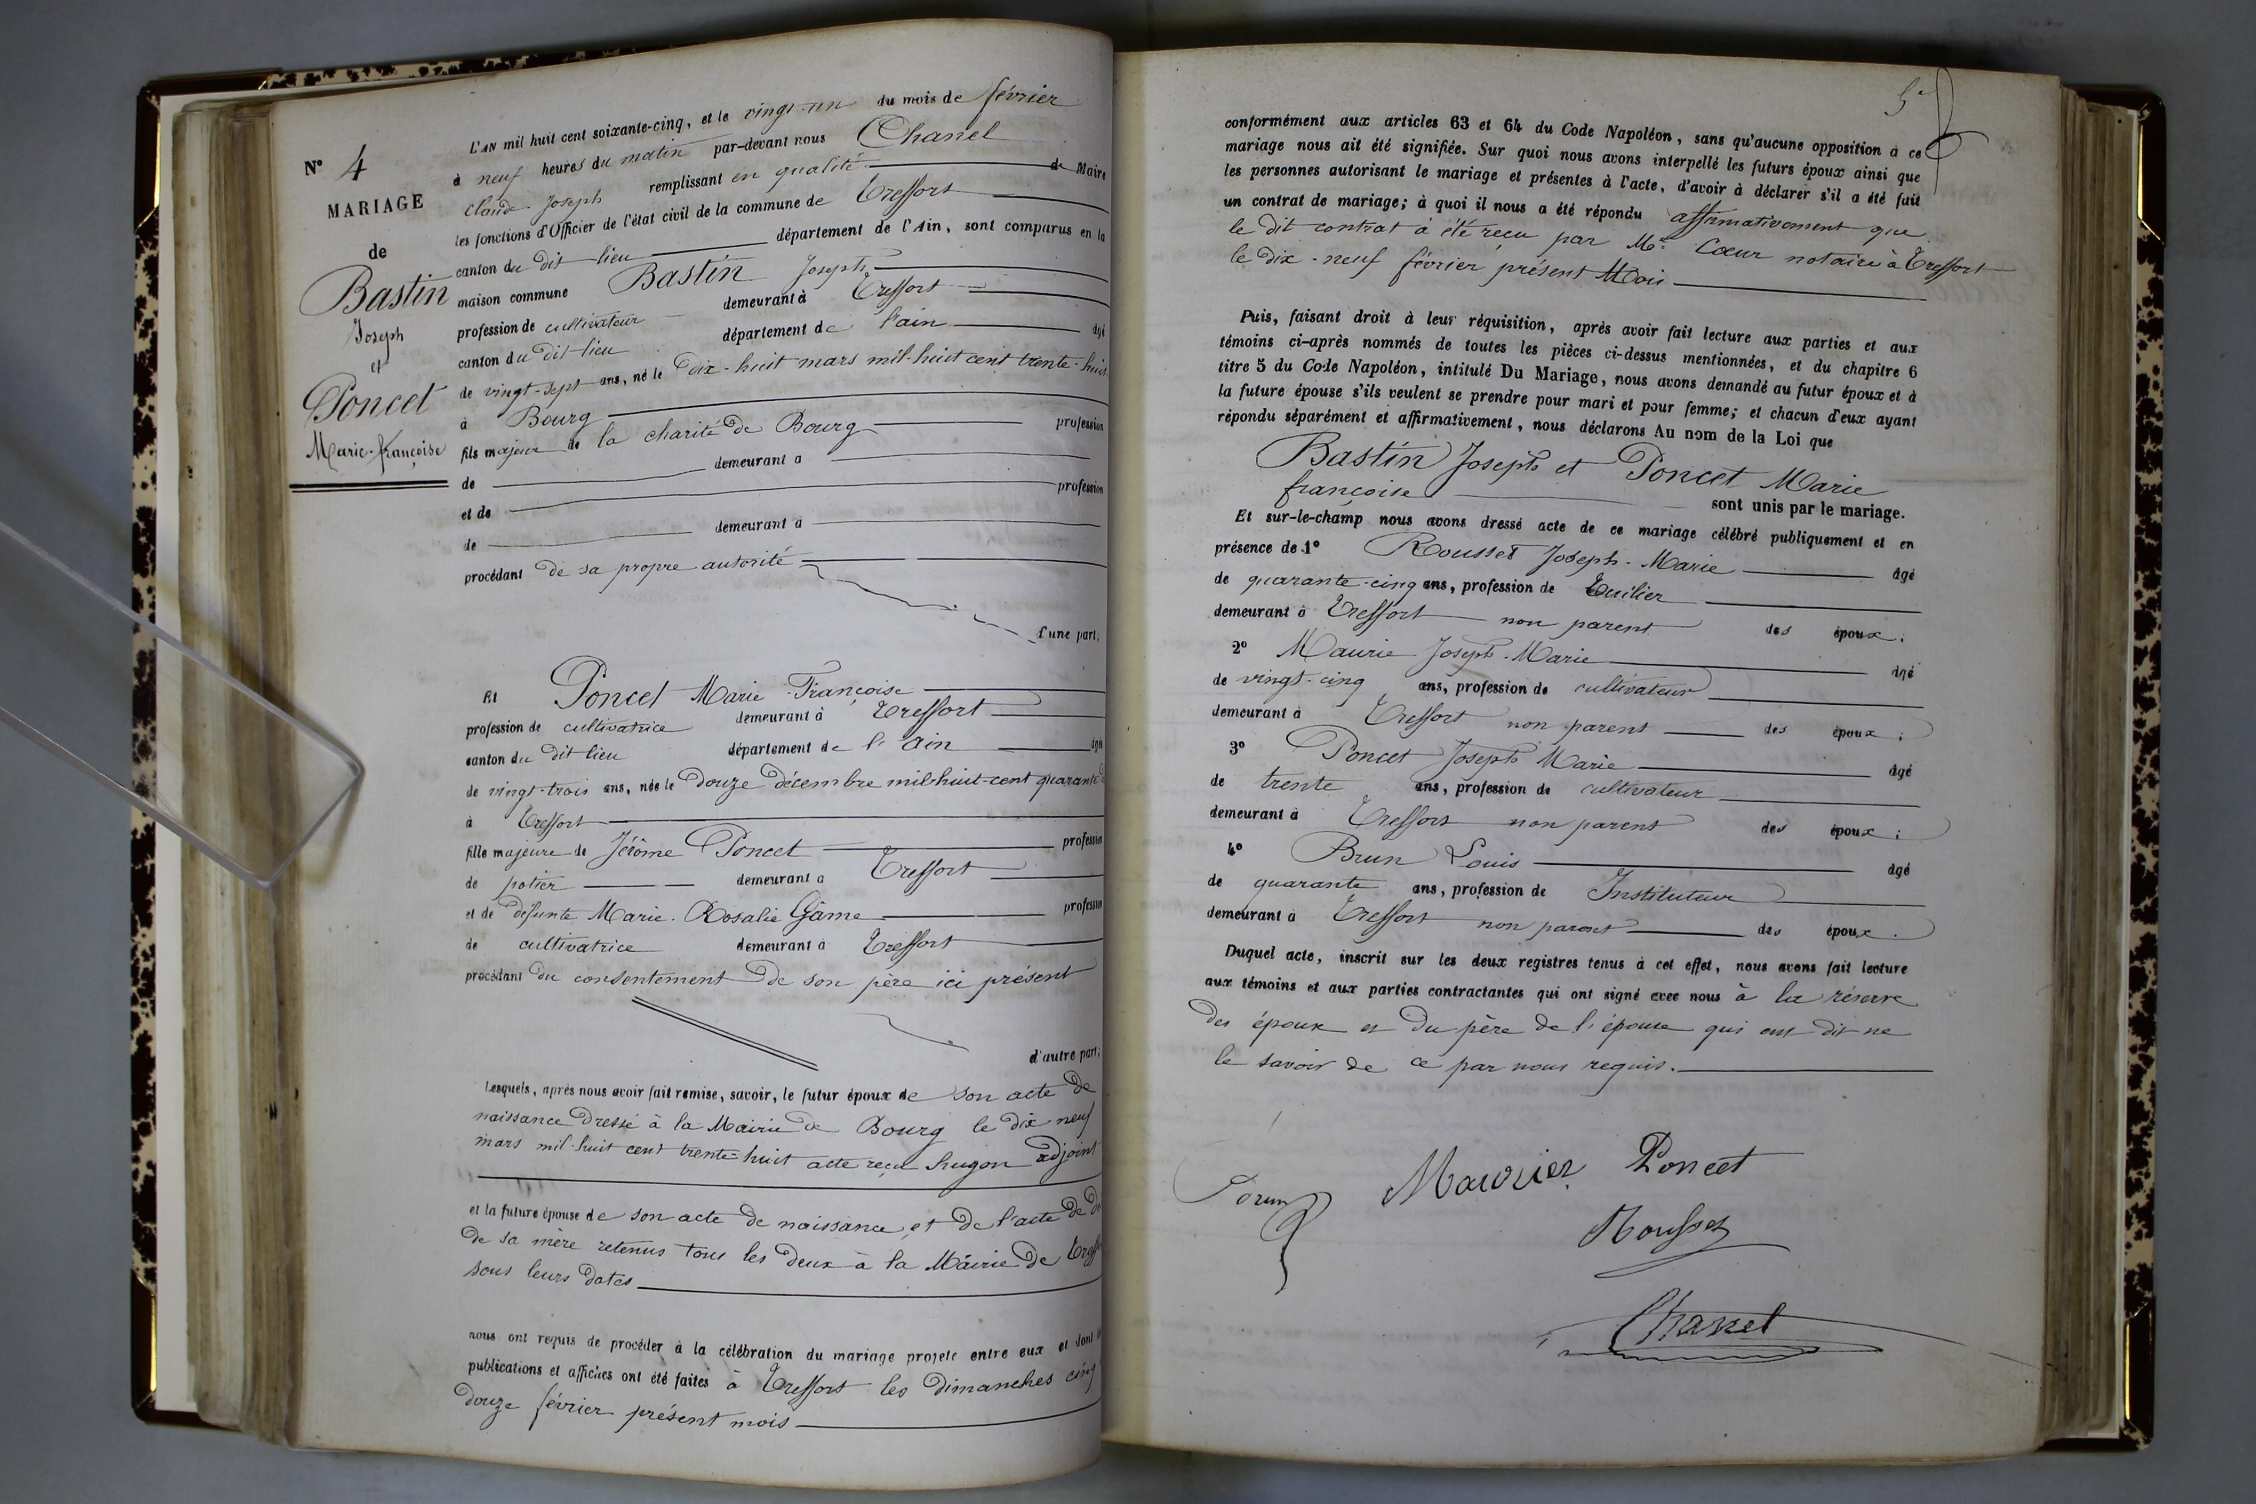 N° 4
MARIAGE
de
Bastin
Joseph
et
Poncet
Marie-françoise
L'AN mil huit cent soixante-cinq, et le vingt-un du mois de février
à neuf heures du matin par-devant nous Chanel
Claude-Joseph remplissant en qualité de Maire
les fonctions d'Officier de l'état civil de la commune de Treffort
canton du dit lieu département de l'Ain, sont comparus en la
maison commune Bastin Joseph
profession de cultivateur demeurant à Treffort
canton du dit lieu département de l'ain âgé
de vingt-sept ans, né le dix-huit mars mil-huit cent trente-huit
à Bourg
fils majeur de la charité de Bourg profession
de demeurant à
et de profession
de demeurant à
procédant de sa propre autorité
d'une part,
Et Poncet Marie-Françoise
profession de cultivatrice demeurant à Treffort
canton du dit lieu département de l'ain âgée
de vingt-trois ans, née le douze décembre mil-huit-cent quarante
à Treffort
fille majeure de Jérôme Poncet profession
de potier demeurant à Treffort
et de défunte Marie-Rosalie Gâme profession
de cultivatrice demeurant à Treffort
procédant du consentement de son père ici présent
d'autre part;
Lesquels, après nous avoir fait remise, savoir, le futur époux de son acte de
naissance dressé à la Mairie de Bourg le dix neuf
mars mil-huit cent trente-huit acte reçu hugon adjoint
et la future épouse de son acte de naissance, et de l'acte de
de sa mère retenus tous les deux à la Mairie de Treffort
sous leurs dates
nous ont requis de procéder à la célébration du mariage projeté entre eux et dont les
publications et affiches ont été faites à Treffort les dimanches cinq
douze février présent mois
5e
conformément aux articles 63 et 64 du Code Napoléon, sans qu'aucune opposition à ce
mariage nous ait été signifiée. Sur quoi nous avons interpellé les futurs époux ainsi que
les personnes autorisant le mariage et présentes à l'acte, d'avoir à déclarer s'il a été fait
un contrat de mariage; à quoi il nous a été répondu affirmativement que
le dit contrat à été reçu par Me Cœur notaire à Treffort
le dix-neuf février présent Mois
Puis, faisant droit à leur réquisition, après avoir fait lecture aux parties et aux
témoins ci-après nommés de toutes les pièces ci-dessus mentionnées, et du chapitre 6
titre 5 du Code Napoléon, intitulé Du Mariage, nous avons demandé au futur époux et à
la future épouse s'ils veulent se prendre pour mari et pour femme; et chacun d'eux ayant
répondu séparément et affirmativement, nous déclarons Au nom de la Loi que
Bastin Joseph et Poncet Marie
françoise sont unis par le mariage.
Et sur-le-champ nous avons dressé acte de ce mariage célébré publiquement et en
présence de 1° Rousset Joseph-Marie âgé
de quarante-cinq ans, profession de Tuilier
demeurant à Treffort non parent des époux;
2° Maurie Joseph-Marie âgé
de vingt-cinq ans, profession de cultivateur
demeurant à Treffort non parent des époux;
3° Poncet Joseph Marie âgé
de trente ans, profession de cultivateur
demeurant à Treffort non parent des époux;
4° Brun Louis âgé
de quarante ans, profession de Instituteur
demeurant à Treffort non parent des époux.
Duquel acte, inscrit sur les deux registres tenus à cet effet, nous avons fait lecture
aux témoins et aux parties contractantes qui ont signé avec nous à la réserve
des époux et du père de l'épouse qui ont dit ne
le savoir de ce par nous requis.
Maurier Poncet
Brun
Rousset
Chanel